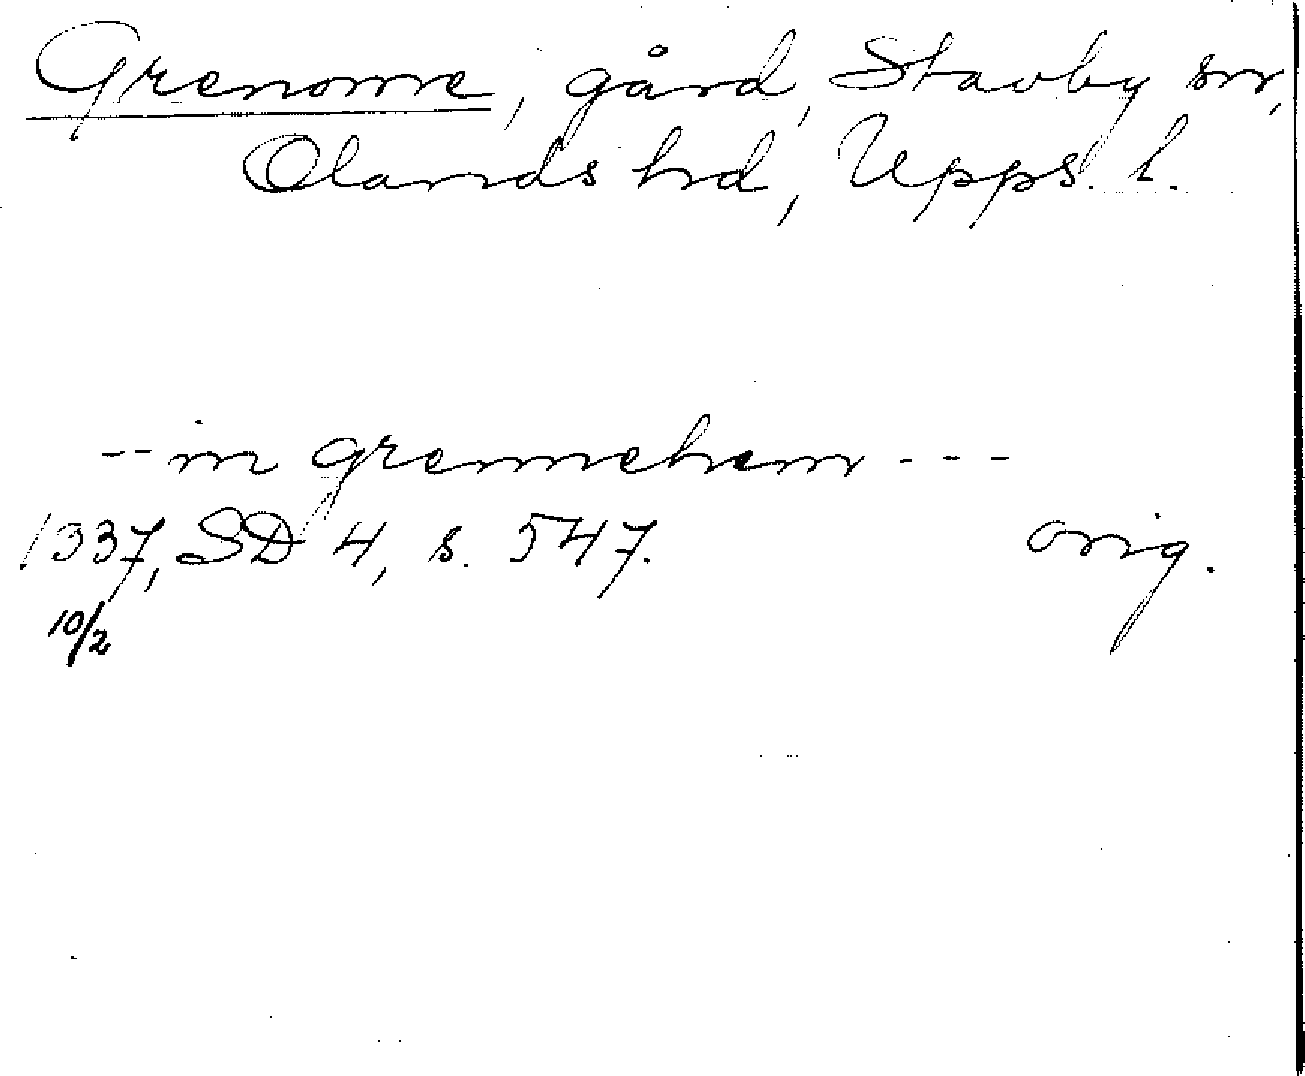 Grenome, gård, Stavby sn,
Olands hd, Upps. l.
-- in grenneham ---
1337, SD 4, s. 547. orig.
10/2